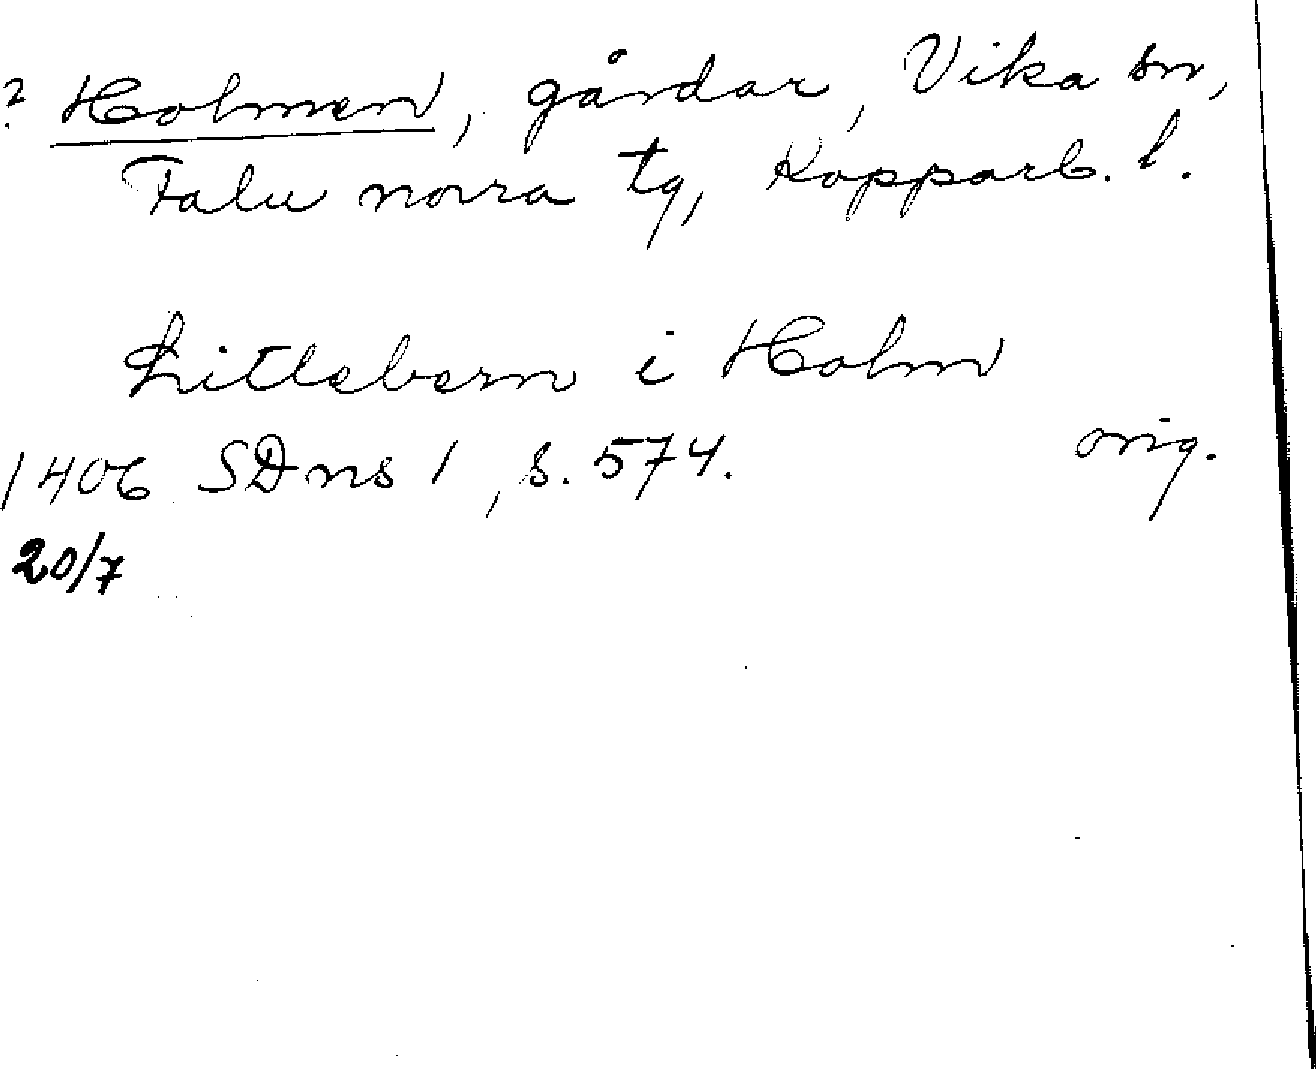 ? Holmen, gårdar, Vika sn,
Falu norra tg, Kopparb. l.
Litlebern i Holm
1406 SDns 1, s. 574. orig.
20/7